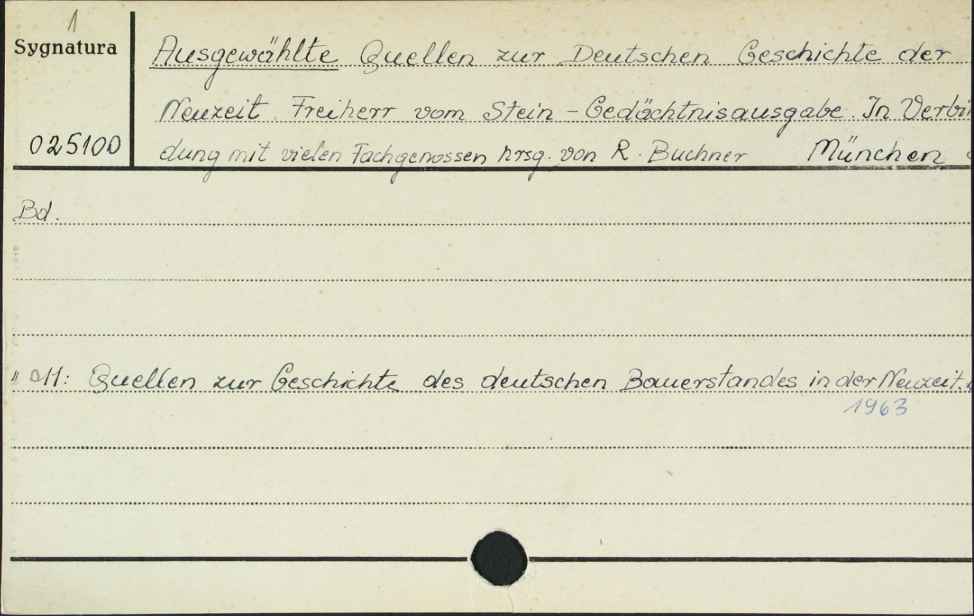 1
Sygnatura
025100
Ausgewählte Quellen zur Deutschen Geschichte der
Neuzeit. Freiherr vom Stein - Gedächtnisausgabe. In Verbin
dung mit vielen Fachgenossen hrsg. von R. Buchner München
Bd.
" 11: Quellen zur Geschichte des deutschen Bauerstandes in der Neuzeit.
1963